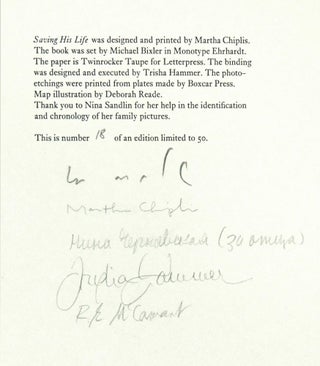 Saving His Life was designed and printed by Martha Chiplis.
The book was set by Michael Bixler in Monotype Ehrhardt.
The paper is Twinrocker Taupe for Letterpress. The binding
was designed and executed by Trisha Hammer. The photo-
etchings were printed from plates made by Boxcar Press.
Map illustration by Deborah Reade.
Thank you to Nina Sandlin for her help in the identification
and chronology of her family pictures.
This is number 18 of an edition limited to 50.
Martha Chiplis
Нина (за отца)
Hammer
R/E McCamant